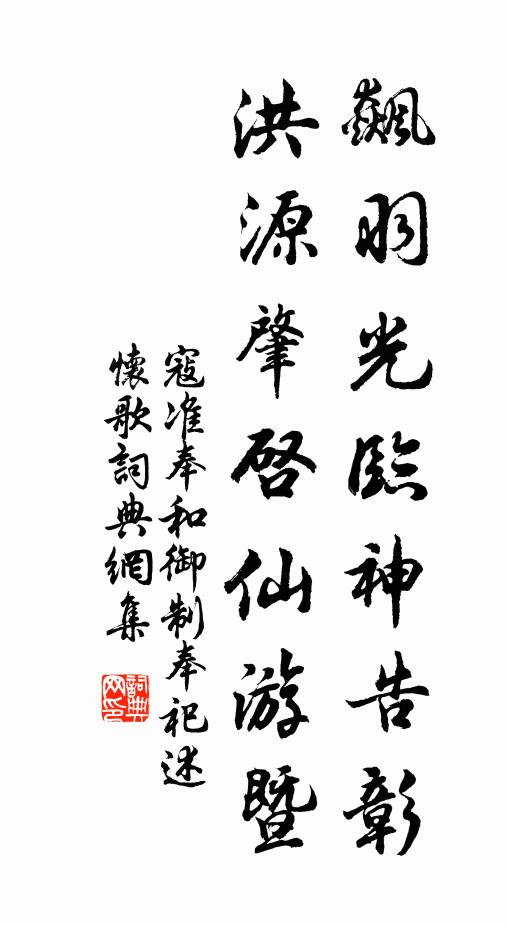 飙羽光臨神告彰
洪源肇启仙游暨
寇准奉和御制奉祀述
懷歌詞典網集
詞典网印